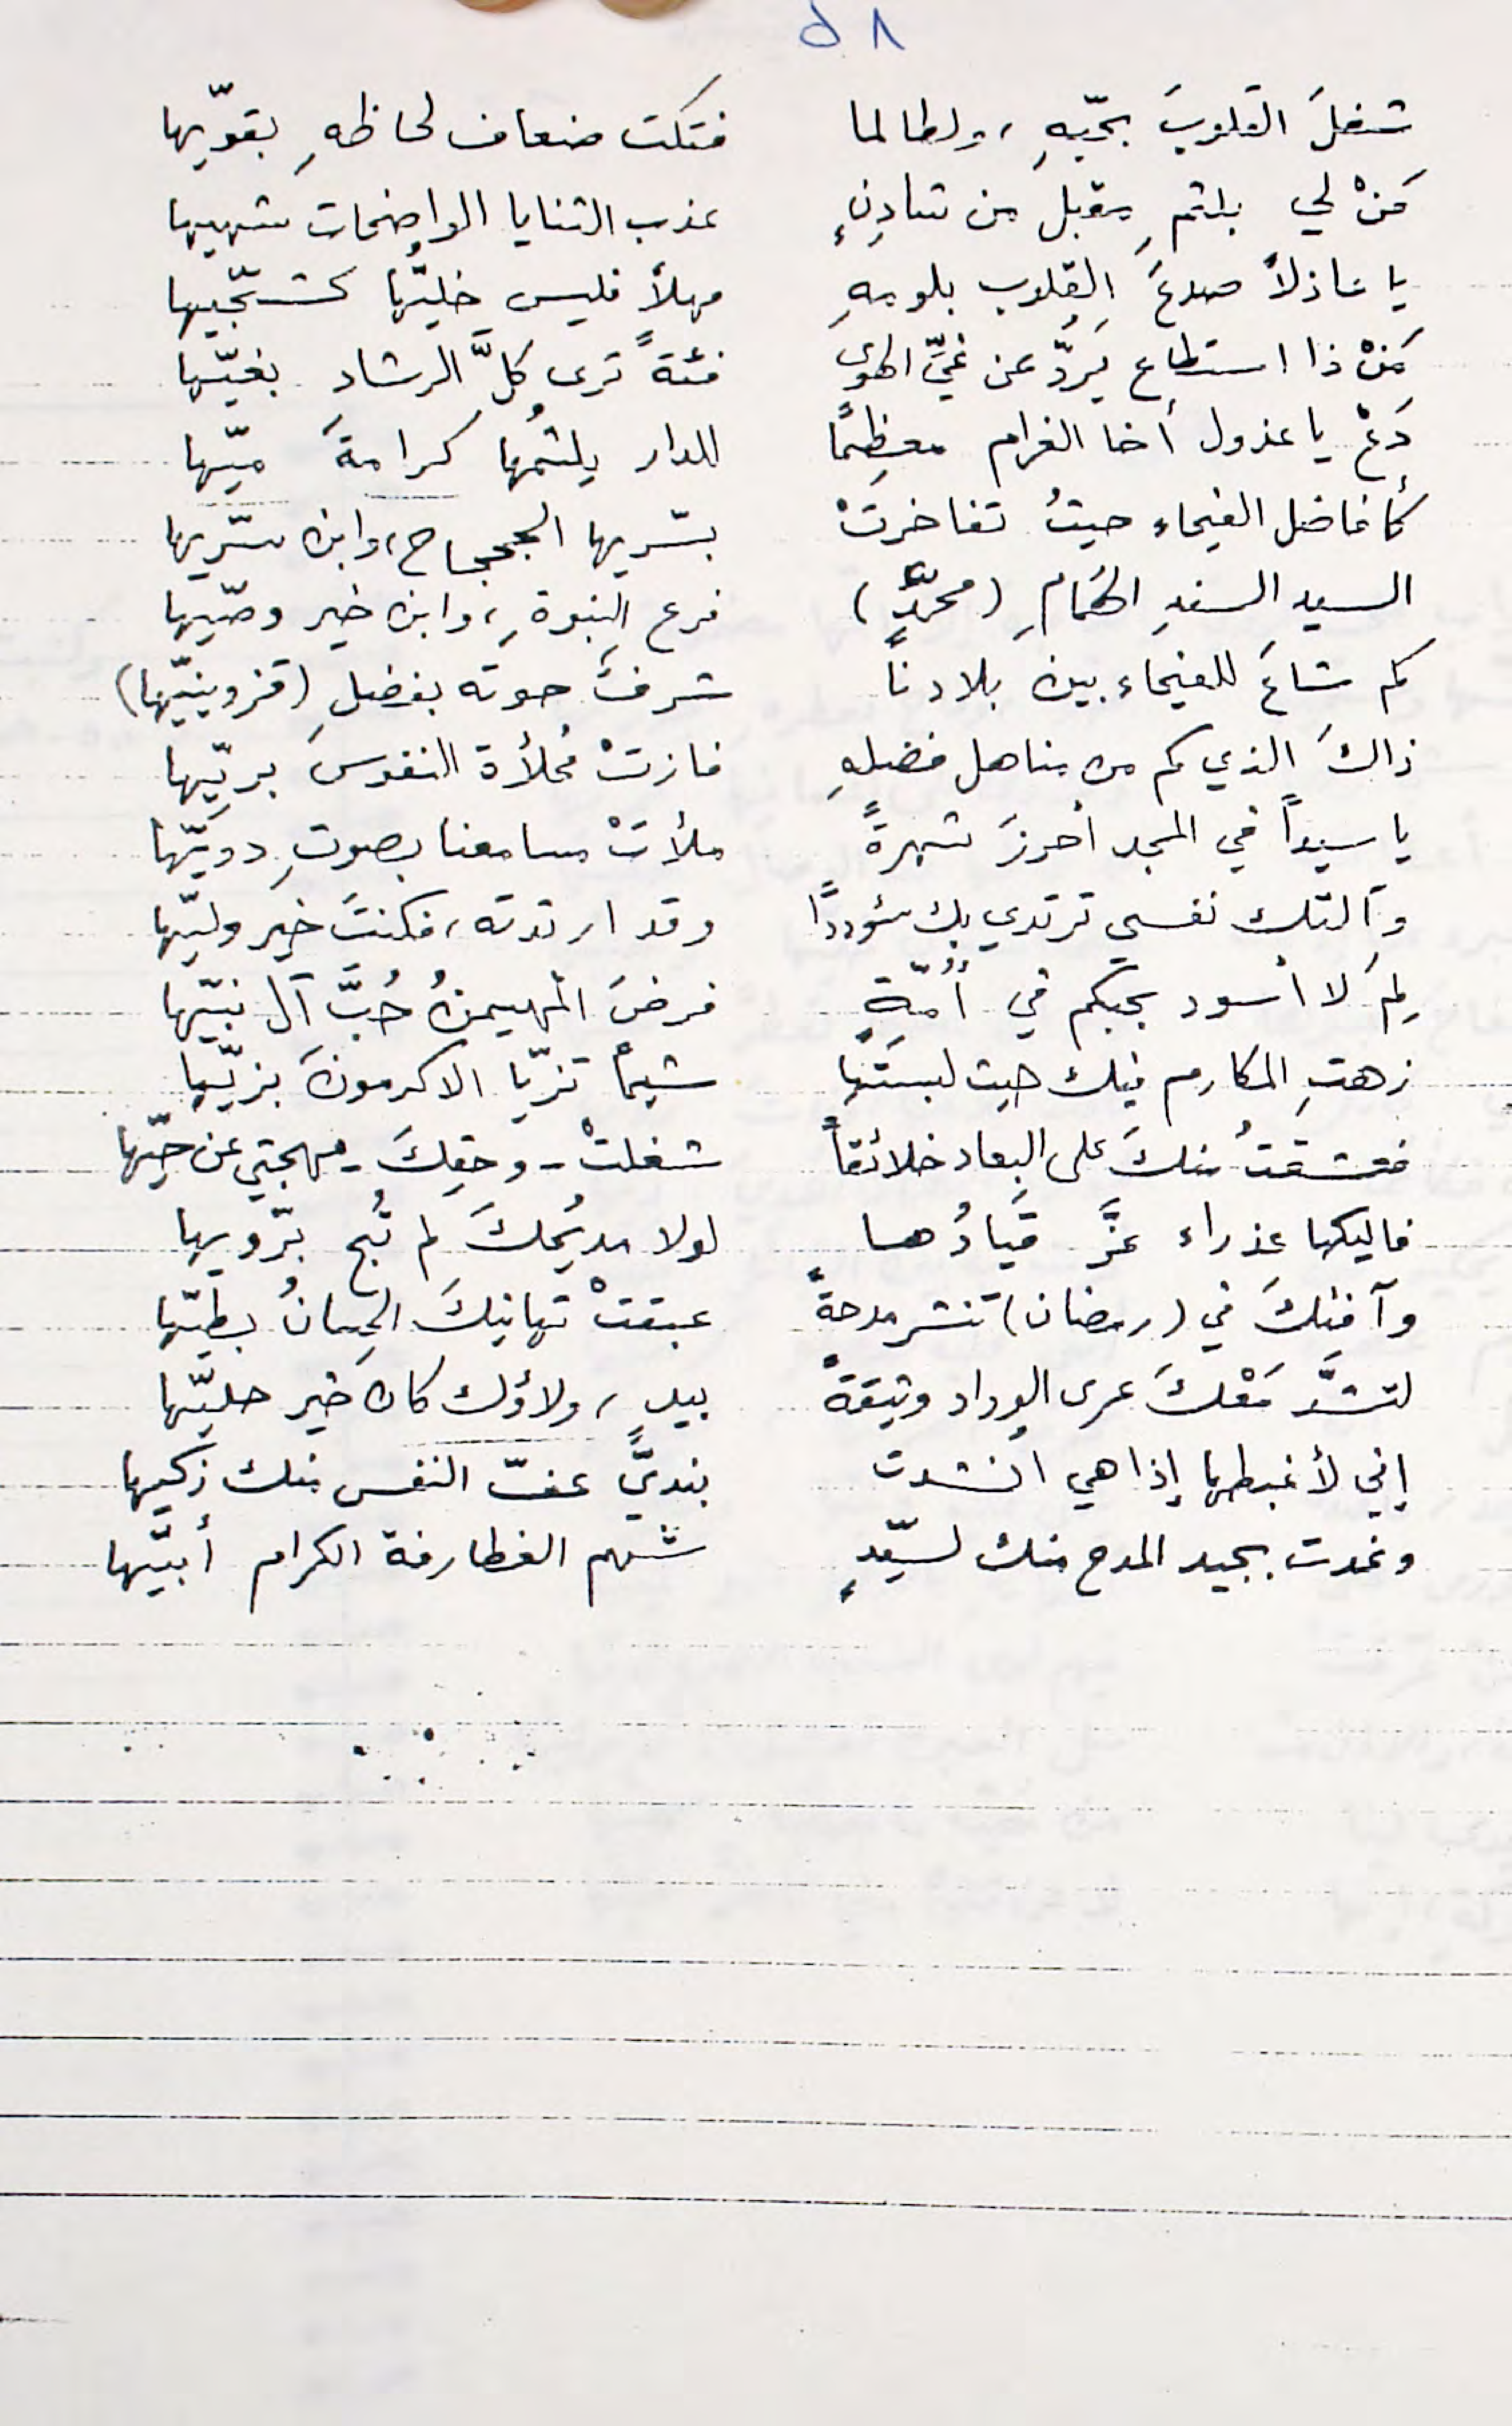 ٥٨
شغلَ القلوبَ بحبّهِ، ولطالما فتكت ضعاف لحاظهِ بقويّها
مَنْ لي بلثمِ مقبل من شادِنٍ عذب الثنايا الواضحات شهيها
يا عاذلاً صدعَ القلوب بلومهِ مهلاً فليس خليّها كشجّيها
مَنْ ذا استطاع يَردّ عن غيِّ الهوى فئةً ترى كلَّ الرشاد بغيّها
دَعْ يا عذول أخا الغرام معظِمًا للدار يلثمُها كرامةَ ميّها
كأفاضل الفيحاء حيثُ تفاخرتْ بسّريها الجحجاح، وابن سّريها
السيد السندِ الهُمامِ (محمّدٍ) فرع النبوةِ، وابن خير وصّيها
كم شاعَ للفيحاء بين بلادنا شرفٌ حوته بفضلِ (قزوينيّها)
ذاكَ الذي كم من مناهل فضلهِ فازتْ مُحلأة النفوسِ بريّها
يا سيداً في المجد أحرزَ شهرةً ملأتْ مسامعنا بصوتِ دويّها
وآلتك نفسي ترتدي بك سؤددًا وقد ارتدته، فكنتَ خير وليّها
لِمَ لا أسود بحبكم في أُمّةٍ فرضَ المهيمنُ حُبَّ آل نبيّها
زهتِ المكارم فيك حيث لبستَها شيماً تزيّا الاكرمونَ بزيّها
فعشقتُ منكَ على البعاد خلائقاً شغلتْ - وحقِكَ - مهجتي عن حيّها
فاليكها عذراء عزَّ قيادُها لولا مديُحكَ لم تُبح برّويها
وآفتكَ في (رمضان) تنشر مدحةً عبقتْ تهانيكَ الحِسانُ بطيّها
لتشدَّ مَعْكَ عرى الوداد وثيقةً بيدٍ، ولاؤك كان خير حليّها
إني لأغبطها إذا هي انشدت بنديِّ عفّ النفس منك زكيها
وغدت بجيد المدح منك لسيّدٍ شهم الغطارفة الكرام أبيّها